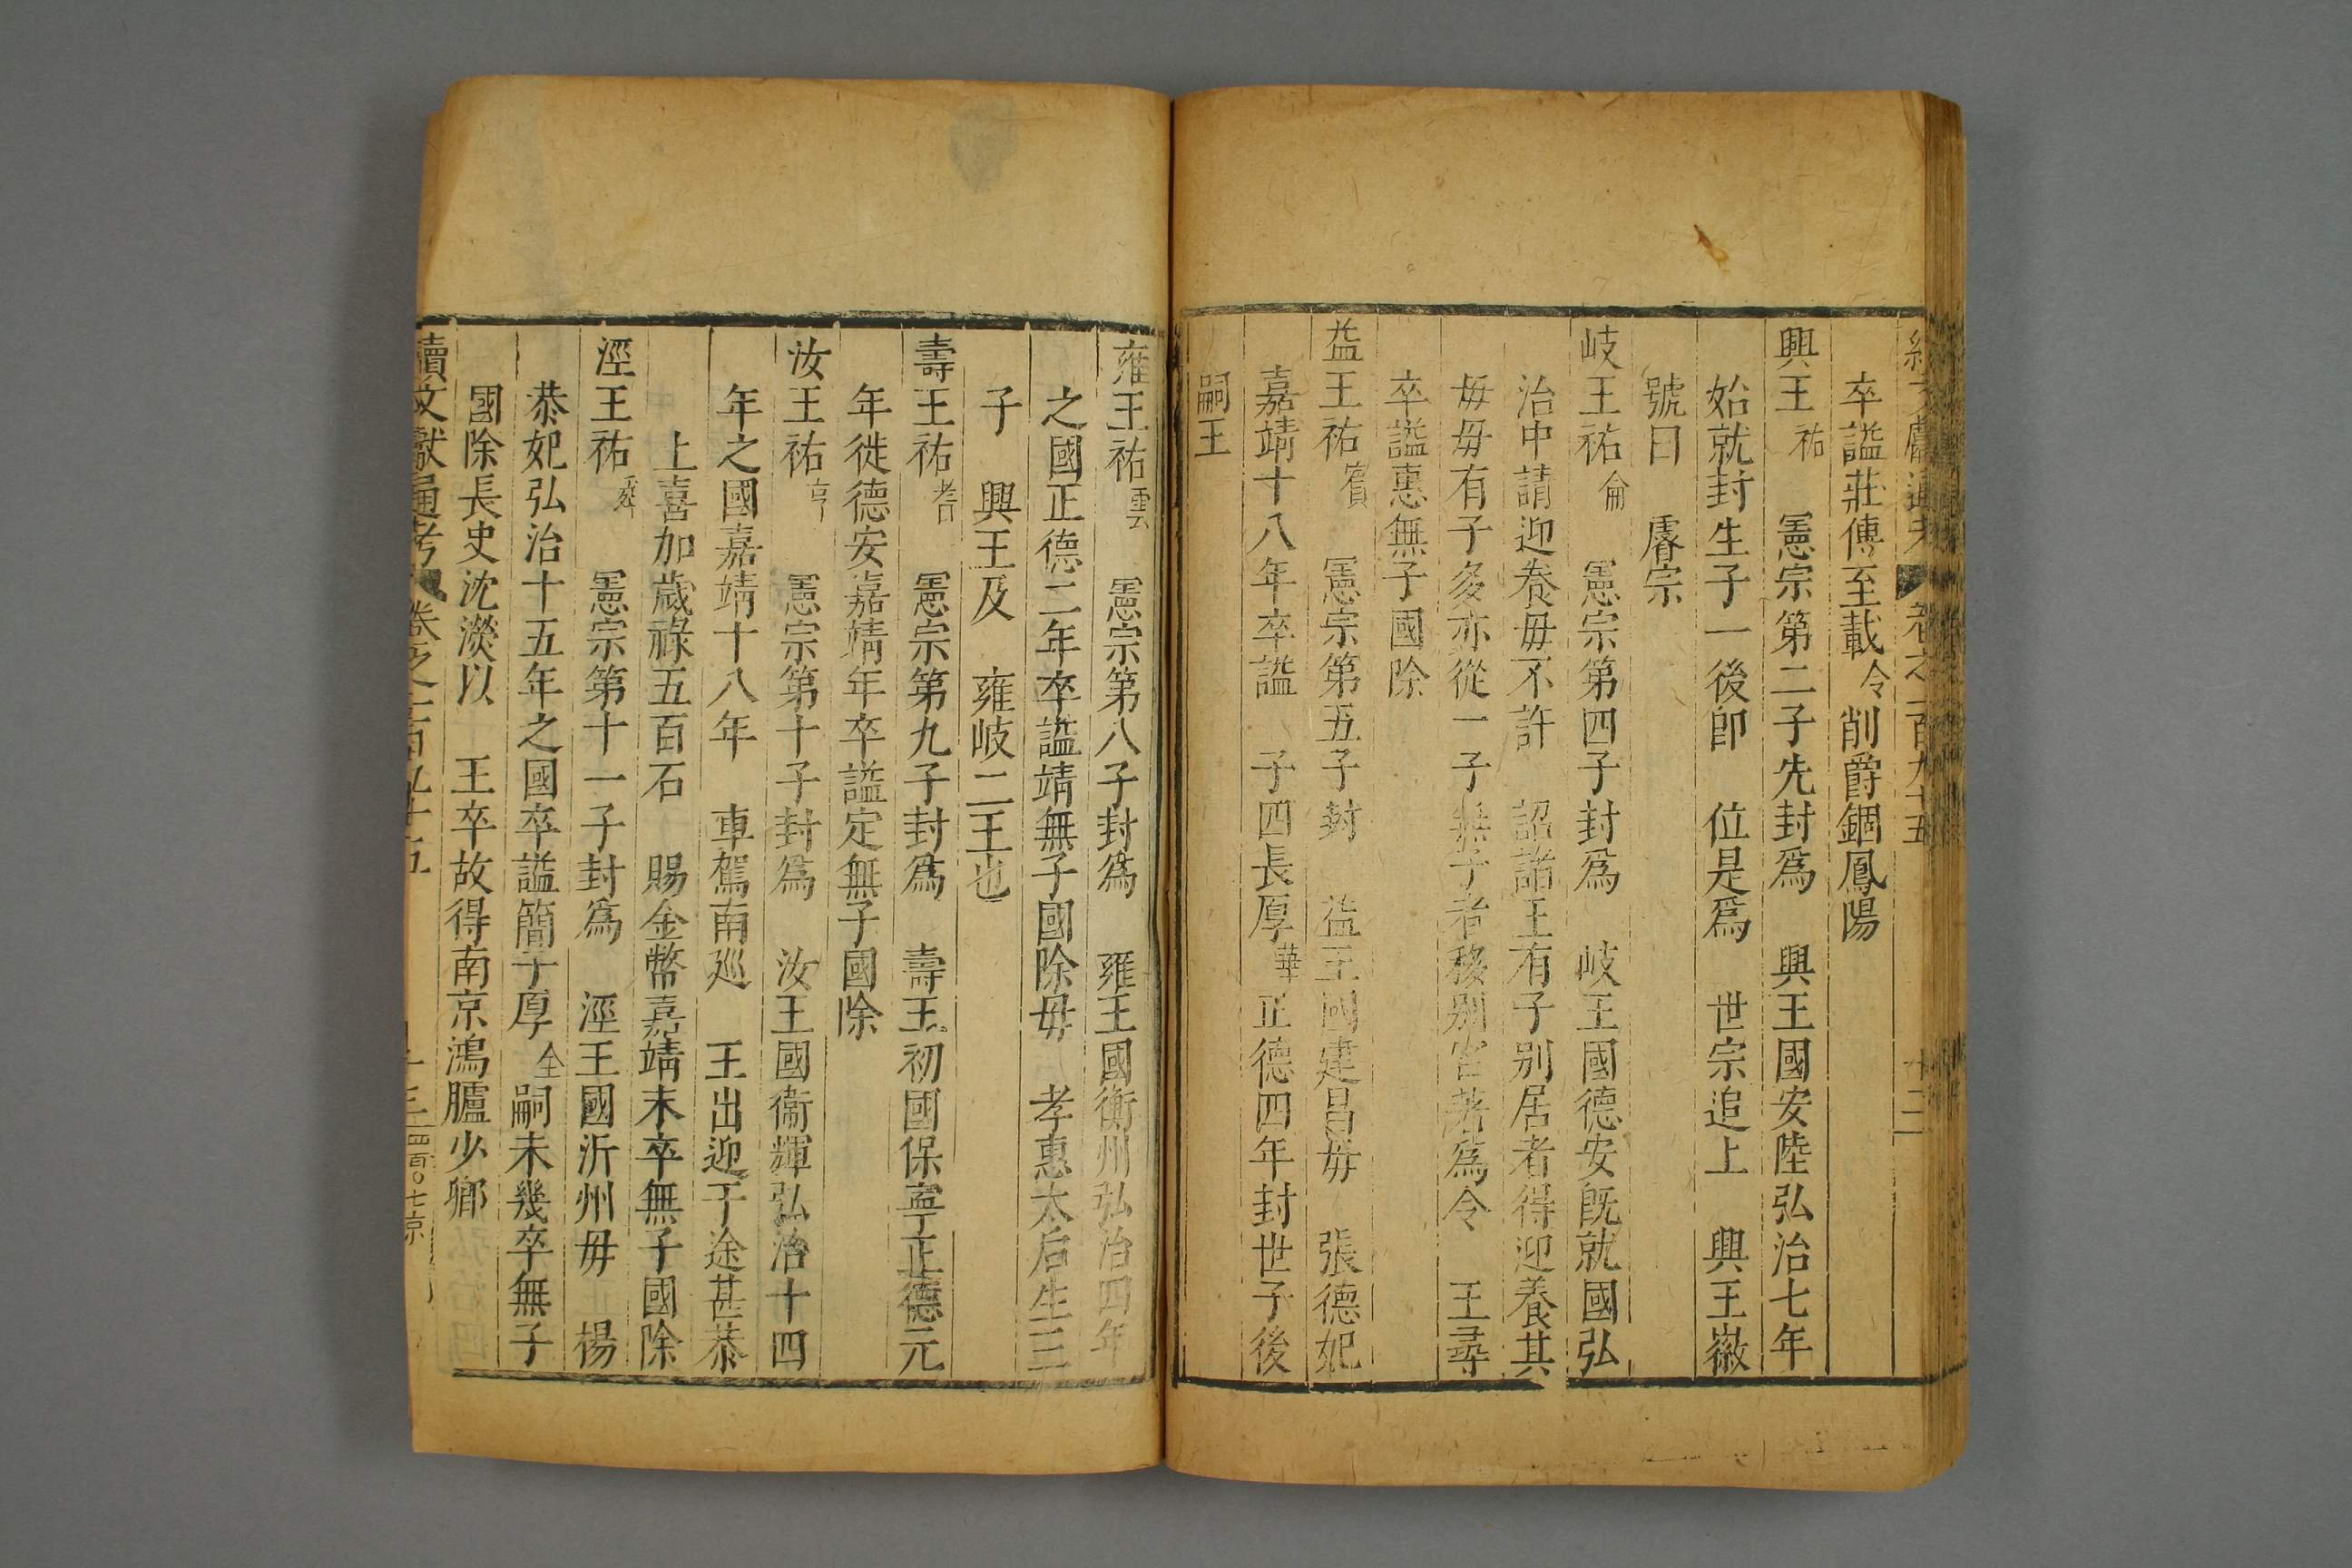 續文獻通考 卷之二百九十五 十二
卒謚莊傳至載令削爵錮鳳陽
興王祐 憲宗第二子先封爲 興王國安陸弘治七年
始就封生子一後卽 位是爲 世宗追上 興王徽
號曰 睿宗
岐王祐侖 憲宗第四子封爲 岐王國德安旣就國弘
治中請迎養母不許 詔諸王有子别居者得迎養其
母母有子多亦從一子無子者移别宫著爲令 王尋
卒謚惠無子國除
益王祐賓 憲宗第五子封 益王國建昌母 張德妃
嘉靖十八年卒謚 子四長厚華正德四年封世子後
嗣王
雍王祐雲 憲宗第八子封爲 雍王國衡州弘治四年
之國正德二年卒謚靖無子國除母 孝惠太后生三
子 興王及 雍岐二王也
壽王祐耆 憲宗第九子封爲 壽王初國保寧正德元
年徙德安嘉靖年卒謚定無子國除
汝王祐亨 憲宗第十子封爲 汝王國衞輝弘治十四
年之國嘉靖十八年 車駕南廵 王出迎于途甚恭
上喜加歲祿五百石 賜金幣嘉靖末卒無子國除
涇王祐 憲宗第十一子封爲 涇王國沂州母 楊
恭妃弘治十五年之國卒謚簡子厚全嗣未幾卒無子
國除長史沈濙以 王卒故得南京鴻臚少卿
續文獻通考 卷之二百九十五 十三 四百〇七京